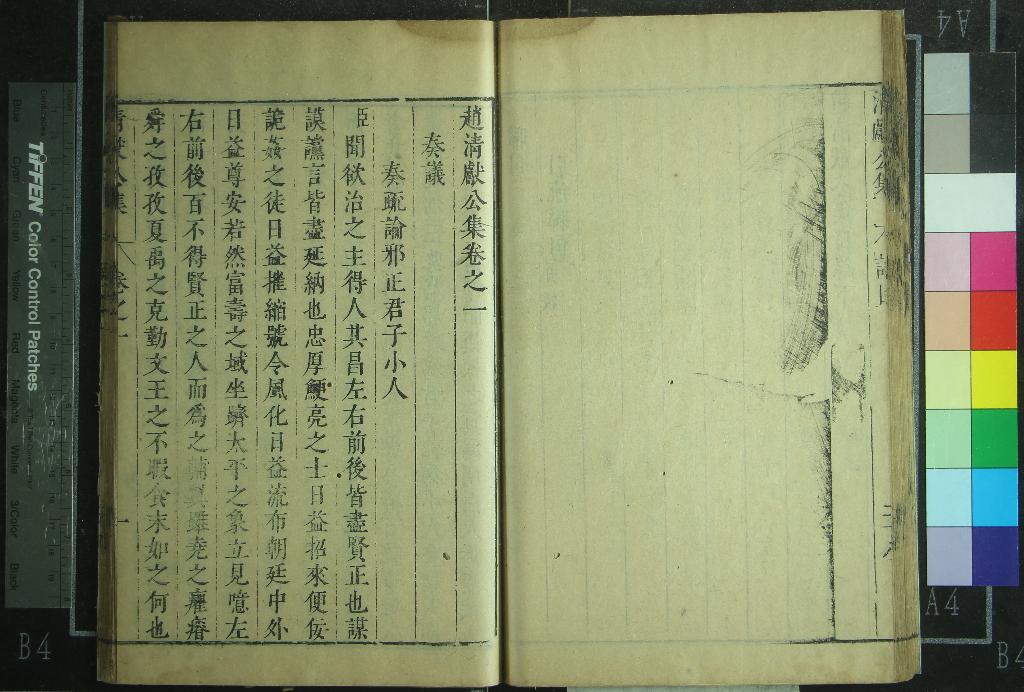 趙清獻公集卷之一
奏議
奏疏論邪正君子小人
臣聞欲治之主得人其昌左右前後皆盡賢正也謀
謨讜言皆盡延納也忠厚鯁亮之士日益招來便佞
詭姦之徒日益摧縮號令風化日益流布朝廷中外
日益尊安若然富壽之域坐躋太平之象立見噫左
右前後百不得賢正之人而爲之輔翼雖堯之癯瘠
舜之孜孜夏禹之克勤文王之不暇食末如之何也
清獻公集 卷之一 一
清獻公集
TIFFEN Color Control Patches
Blue
Cyan
Green
Yellow
Red
Magenta
White
3/Color
Black
A4
A4
B4
B4